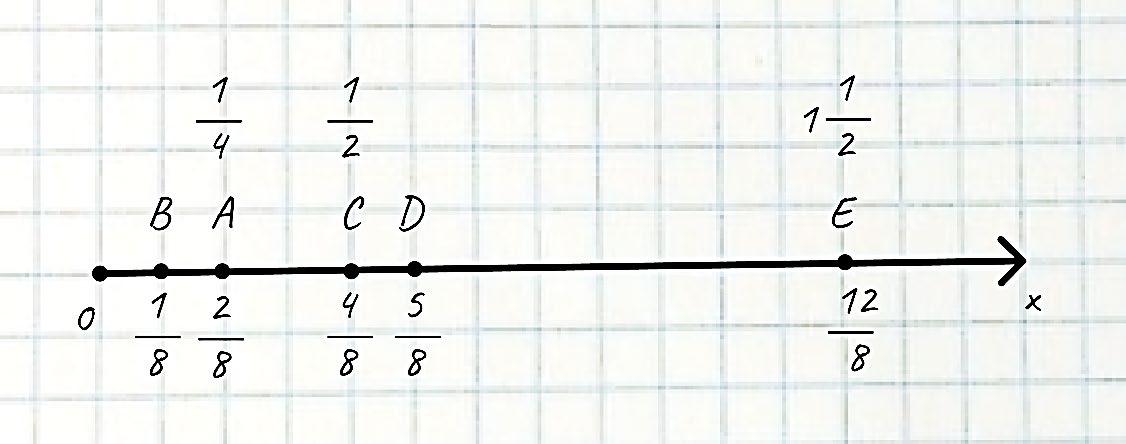 1/4 1/2 1 1/2
B A C D E
0 1/8 2/8 4/8 5/8 12/8 x